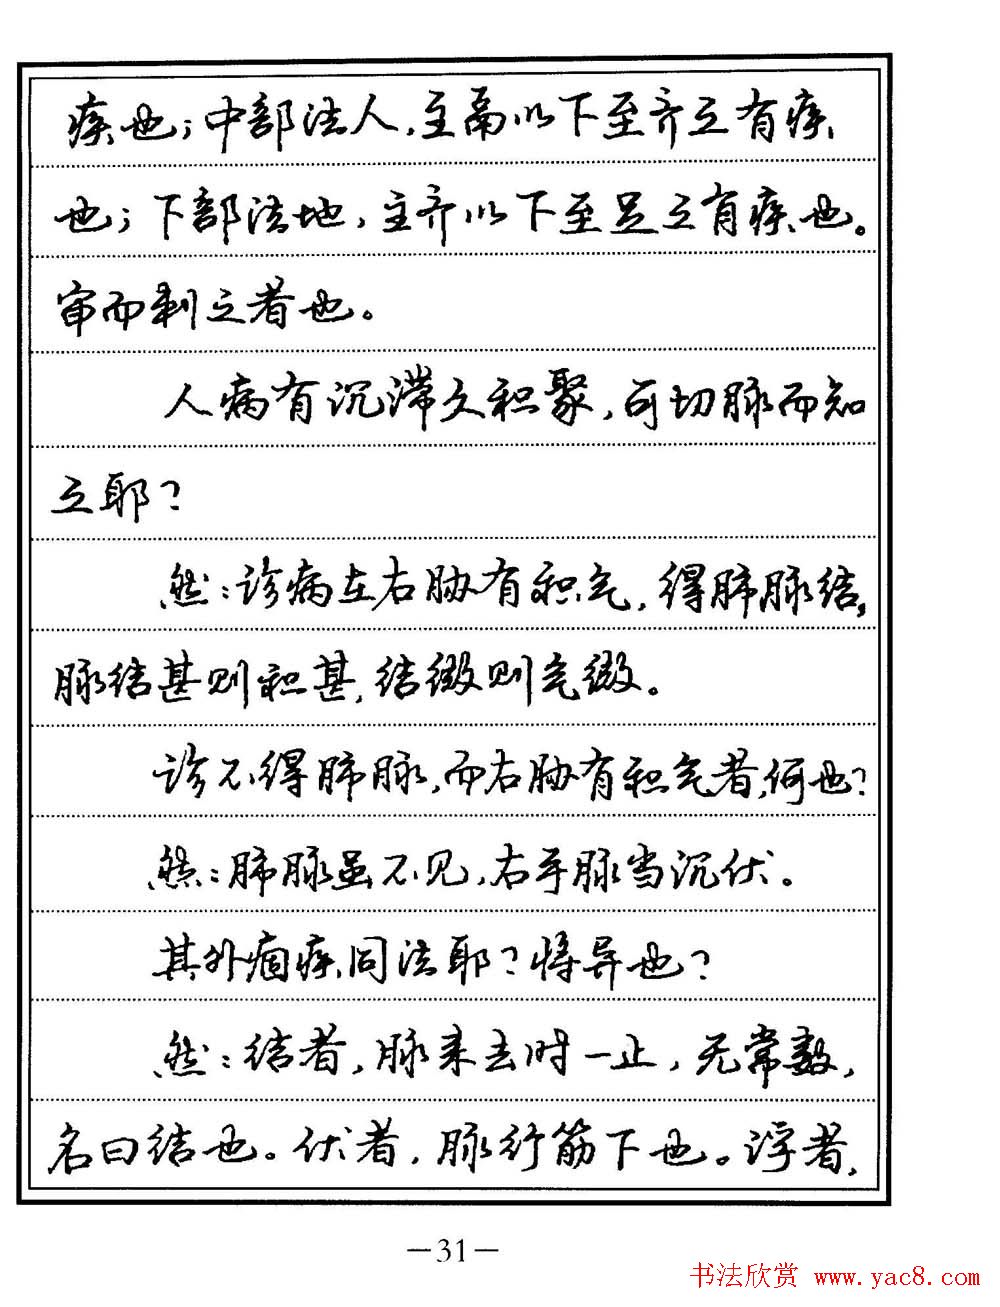 疾也；中部法人，主鬲以下至齐之有疾
也；下部法地，主齐以下至足之有疾也。
审而刺之者也。
人病有沉滞久积聚，可切脉而知
之耶？
然：诊病左右胁有积气，得肺脉结，
脉结甚则积甚，结微则气微。
诊不得肺脉，而右胁有积气者，何也？
然：肺脉虽不见，右手脉当沉伏。
其外痼疾同法耶？将异也？
然：结者，脉来去时一止，无常数，
名曰结也。伏者，脉行筋下也。浮者，
—31—
书法欣赏 www.yac8.com